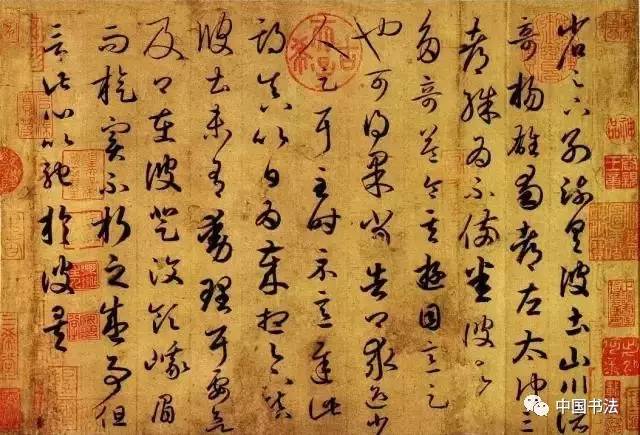 省足下別疏具彼土山川諸
奇揚雄蜀都左太沖三
都殊為不備悉彼故為
多奇益令其遊目意足
也可得果當告卿求迎少
人足耳至時示意遲此
期真以日為歲想足下鎮
彼土未有動理耳要欲
及卿在彼登汶領峨眉
而旋實不朽之盛事但
言此心以馳於彼矣
中国书法